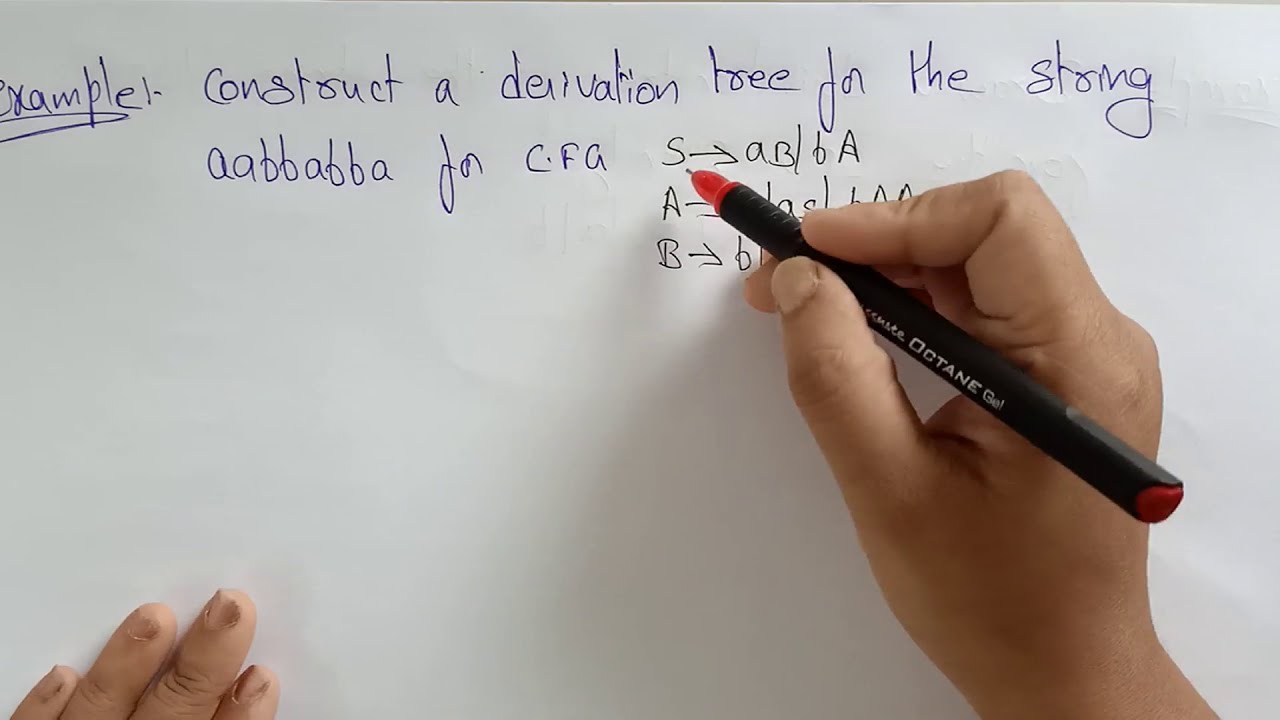 Example:-
Construct a derivation tree for the string
aabbabba for C.F.G S→aB/bA
A→ /as/ bAA
B→ b/
OCTANE Gel